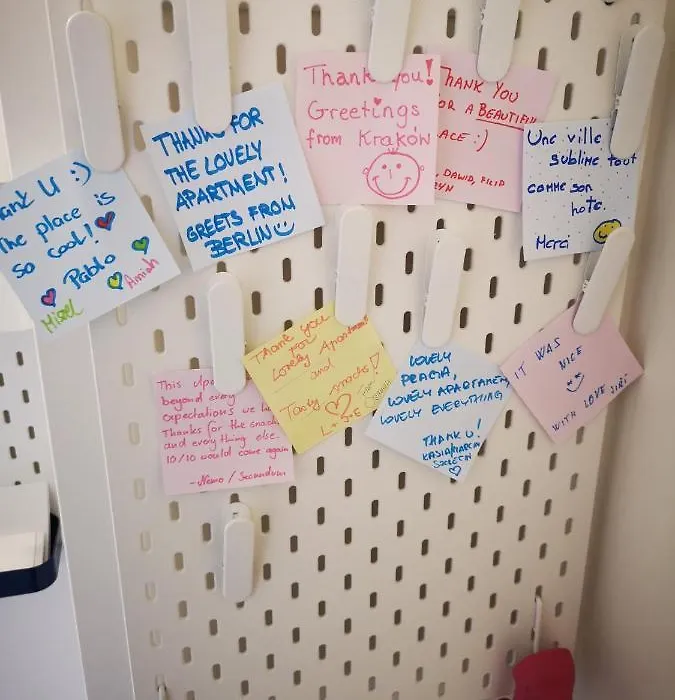 ank U :)
The place is
so cool!
Pablo
Amiah
THANKS FOR
THE LOVELY
APARTMENT!
GREETS FROM
BERLIN
Thank you!
Greetings
from Kraków
THANK YOU
OR A BEAUTIFUL
ACE :)
, DAWID, FILIP
Une ville
sublime tout
comme son
hote.
Merci
This Apa
beyond every
expectations we ha
Thanks for the snacks
and everything else.
10/10 would come again
- Nemo / Secundum
Thank you
for
Lovely Apartment
and
Tasty snacks!
LOVELY
LOVELY APARTMENT,
LOVELY EVERYTHING
THANK U!
KASIA/MARCIN
SZCZECIN
IT WAS
NICE
WITH LOVE JIŘI